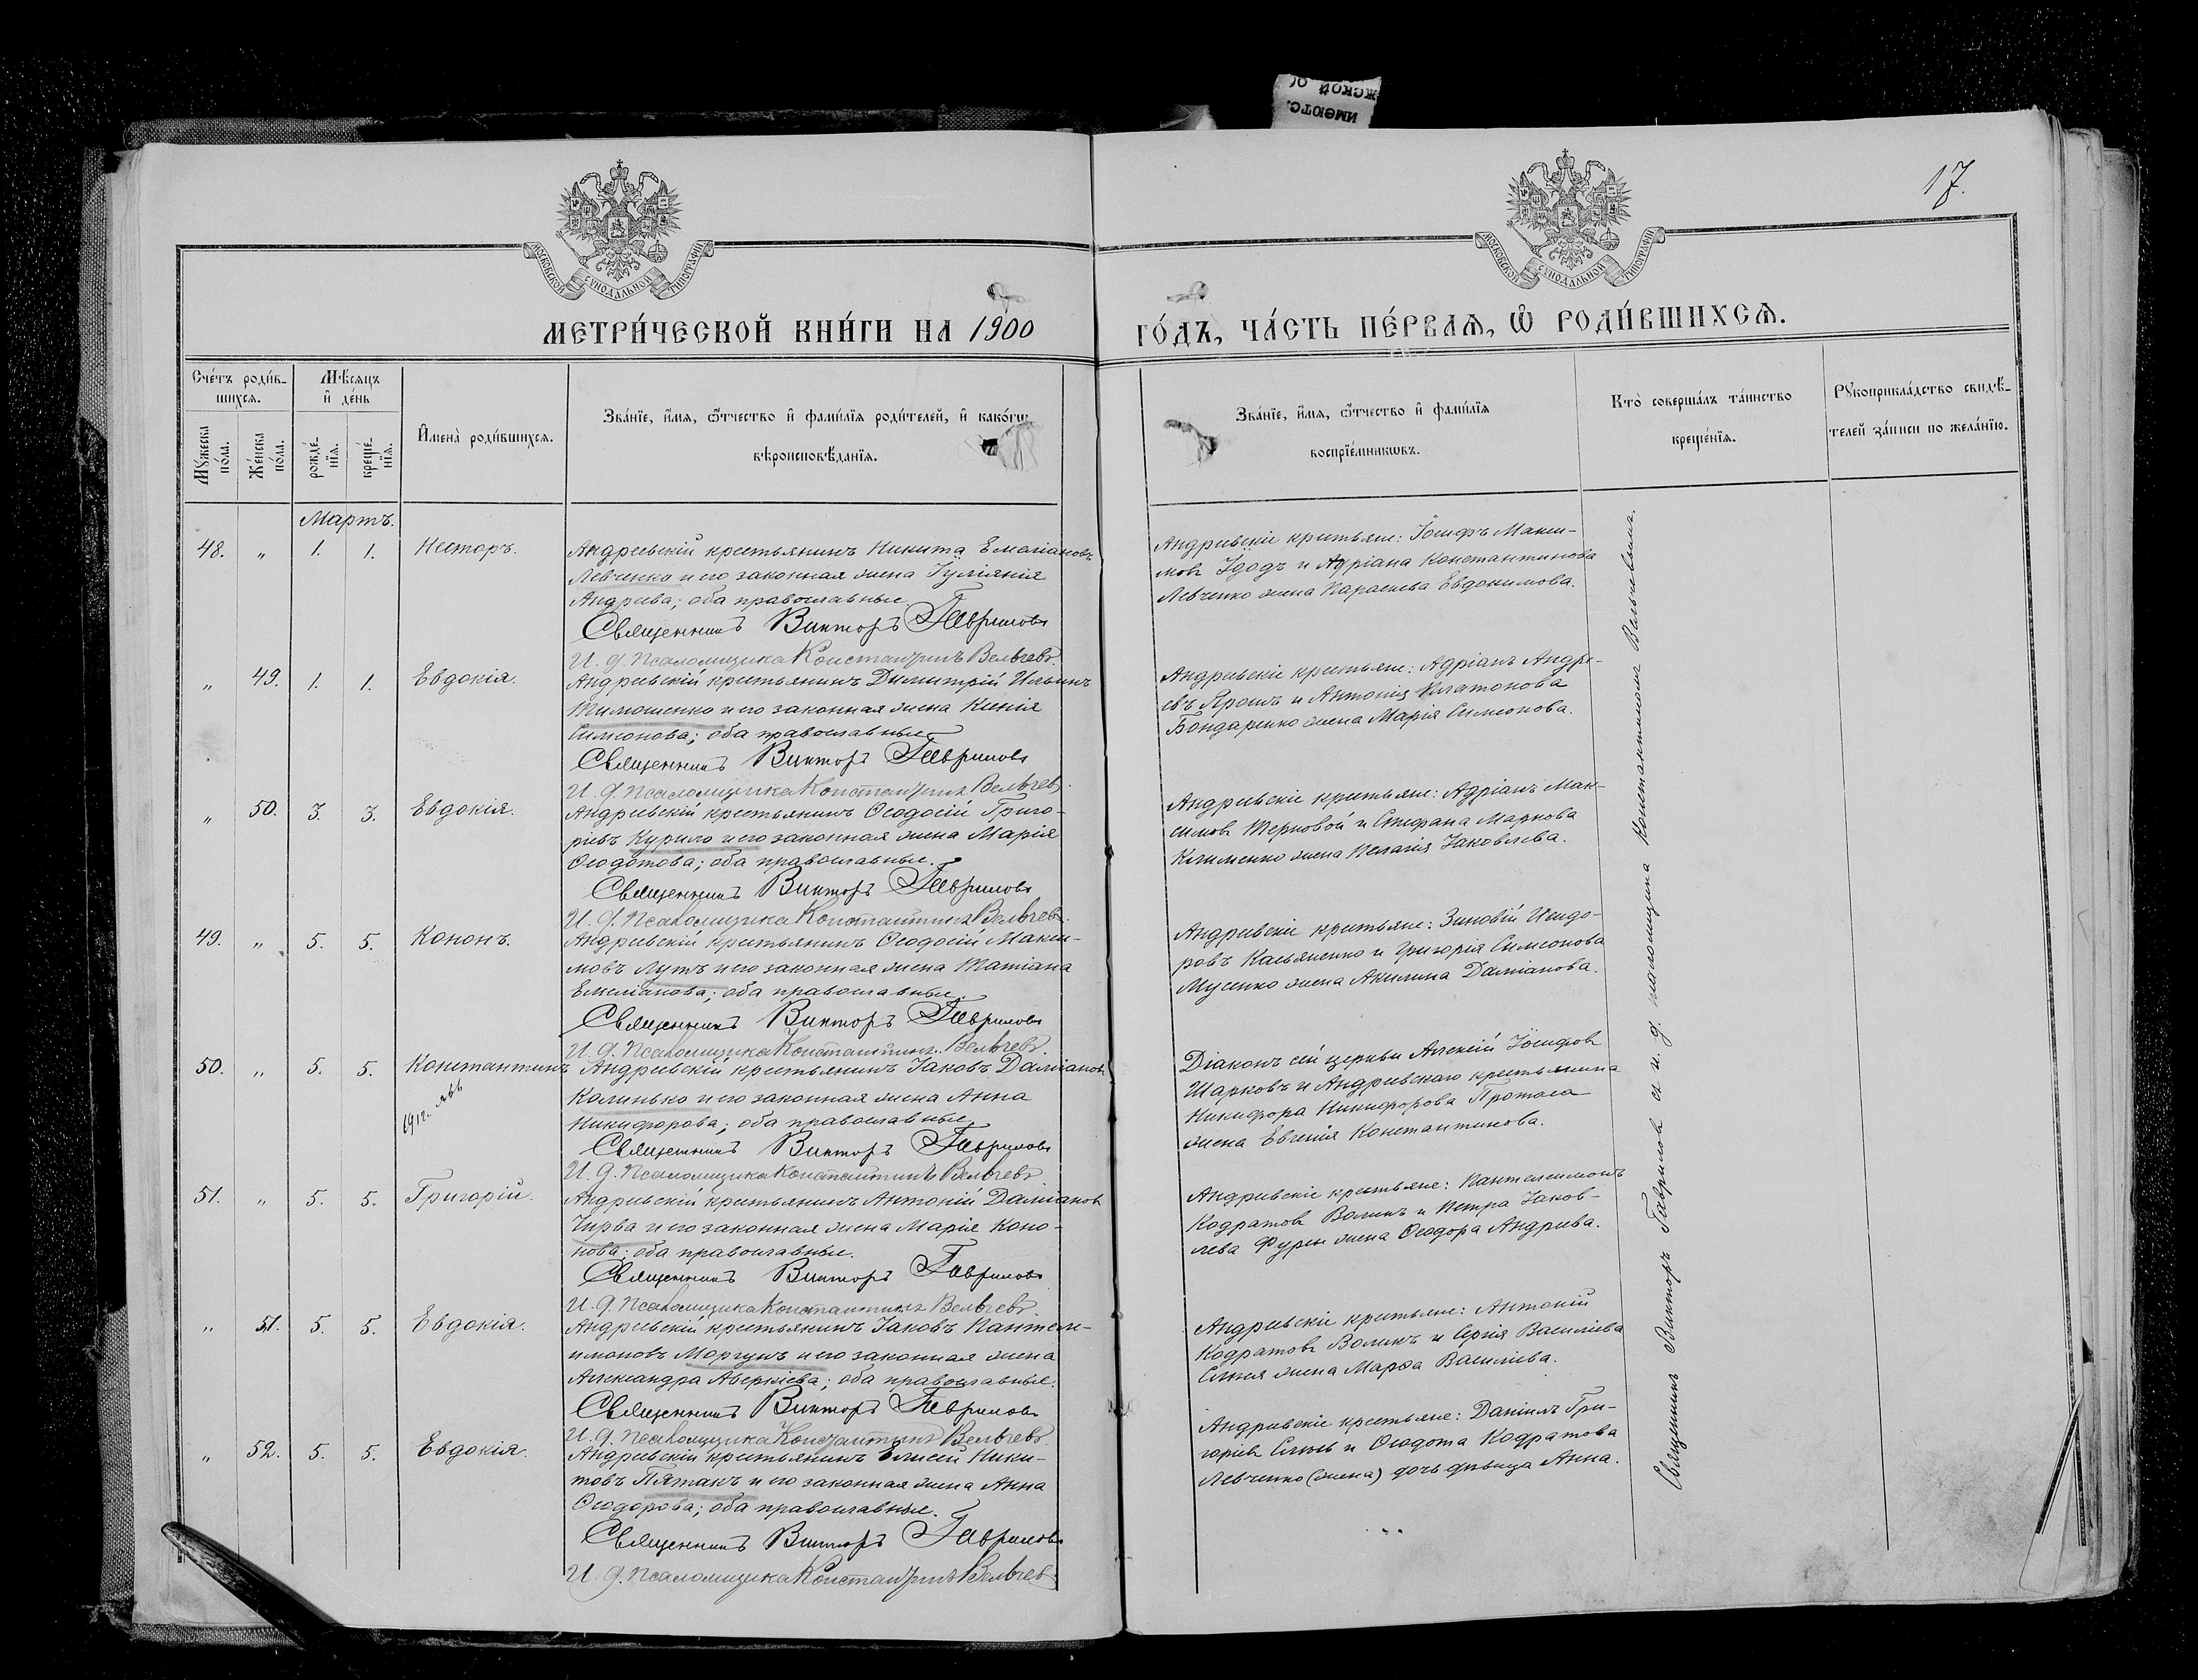 ИМЕЮТС.
ЖСКОЙ ОБ
17.
МОСКОВСКОЙ СѴНОДАЛЬНОЙ ТИПОГРАФІИ
МОСКОВСКОЙ СѴНОДАЛЬНОЙ ТИПОГРАФІИ
МЕТРИ́ЧЕСКОЙ КНИ́ГИ НА 1900
ГО́ДЪ, ЧА́СТЬ ПЕ́РВАѦ, Ѽ РОДИ́ВШИХСѦ.
Сче́тъ роди́в-
шихсѧ.
Мꙋ́жеска
по́ла.
Же́нска
по́ла.
Мѣ́сѧцъ
и҆ де́нь
рожде́-
нїѧ.
креще́-
нїѧ.
И҆мена̀ роди́вшихсѧ.
Зва́нїе, и҆́мѧ, ѻ҆́тчество и҆ фами́лїѧ роди́телей, и҆ како́гѡ
вѣроисповѣ́данїѧ.
Зва́нїе, и҆́мѧ, ѻ҆́тчество и҆ фами́лїѧ
воспрїе́мникѡвъ.
Кто̀ соверша́лъ та́инство
креще́нїѧ.
Рꙋкоприкла́дство свидѣ́-
телей за́писи по жела́нїю.
Мартъ.
48. " 1. 1. Несторъ.
Андреевскій крестьянинъ Никита Емеліановъ
Левченко и его законная жена Іуліанія
Андреева; оба православные.
Священникъ Викторъ Гавриловъ
И. д. Псаломщика Константинъ Вельчевъ.
Андреевскіе крестьяне: Іосифъ Макси-
мовъ Удодъ и Адріана Константинова
Левченко жена Параскева Евдокимова.
" 49. 1. 1. Евдокія.
Андреевскій крестьянинъ Димитрій Ильинъ
Тимошенко и его законная жена Ксенія
Симеонова; оба православные.
Священникъ Викторъ Гавриловъ
И. д. Псаломщика Константинъ Вельчевъ.
Андреевскіе крестьяне: Адріанъ Андре-
евъ Ярошъ и Антонія Платонова
Бондаренко жена Марія Симеонова.
" 50. 3. 3. Евдокія.
Андреевскій крестьянинъ Ѳеодосій Григо-
ріевъ Курило и его законная жена Марія
Ѳеодотова; оба православные.
Священникъ Викторъ Гавриловъ
И. д. Псаломщика Константинъ Вельчевъ.
Андреевскіе крестьяне: Адріанъ Мак-
симовъ Терновой и Стефана Маркова
Клименко жена Пелагія Іаковлева.
49. " 5. 5. Кононъ.
Андреевскій крестьянинъ Ѳеодосій Макси-
мовъ Лутъ и его законная жена Татіана
Емеліанова; оба православные.
Священникъ Викторъ Гавриловъ
И. д. Псаломщика Константинъ Вельчевъ.
Андреевскіе крестьяне: Зиновій Исидо-
ровъ Касьяненко и Григорія Симеонова
Мусенко жена Акилина Даміанова.
50. " 5. 5. Константинъ
Андреевскій крестьянинъ Іаковъ Даміановъ
Калинько и его законная жена Анна
Никифорова; оба православные.
Священникъ Викторъ Гавриловъ
И. д. Псаломщика Константинъ Вельчевъ.
Діаконъ сей церкви Алексій Іосифовъ
Шарковъ и Андреевскаго крестьянина
Никифора Никифорова Протаса
жена Евгенія Константинова.
51. " 5. 5. Григорій.
Андреевскій крестьянинъ Антоній Даміановъ
Чирва и его законная жена Марія Коно-
нова; оба православные.
Священникъ Викторъ Гавриловъ
И. д. Псаломщика Константинъ Вельчевъ.
Андреевскіе крестьяне: Пантелеимонъ
Кодратовъ Воликъ и Петра Іаков-
лева Фурсы жена Ѳеодора Андреева.
" 51. 5. 5. Евдокія.
Андреевскій крестьянинъ Іаковъ Пантеле-
имоновъ Моргунъ и его законная жена
Александра Аверкіева; оба православные.
Священникъ Викторъ Гавриловъ
И. д. Псаломщика Константинъ Вельчевъ.
Андреевскіе крестьяне: Антоній
Кодратовъ Воликъ и Сергія Василіева
жена Марѳа Василіева.
" 52. 5. 5. Евдокія.
Андреевскій крестьянинъ Елисей Ники-
товъ Пятакъ и его законная жена Анна
Ѳеодорова; оба православные.
Священникъ Викторъ Гавриловъ
И. д. Псаломщика Константинъ Вельчевъ.
Андреевскіе крестьяне: Даніилъ Гри-
горіевъ и Ѳеодота Кодратова
Левченко (жена) дочь дѣвица Анна.
Священникъ Викторъ Гавриловъ съ и. д. псаломщика Константиномъ Вельчевымъ.